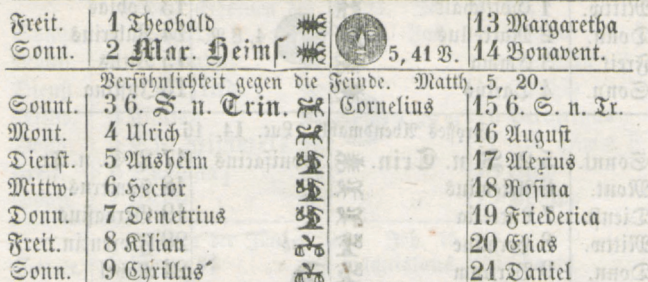 Freit. 1 Theobald 13 Margaretha
Sonn. 2 Mar. Heims. 5, 41 V. 14 Bonavent.
Versöhnlichkeit gegen die Feinde. Matth. 5, 20.
Sonnt. 3 6. S. n. Trin. Cornelius 15 6. S. n. Tr.
Mont. 4 Ulrich 16 August
Dienst. 5 Anshelm 17 Alexius
Mittw. 6 Hector 18 Rosina
Donn. 7 Demetrius 19 Friederica
Freit. 8 Kilian 20 Elias
Sonn. 9 Cyrillus 21 Daniel